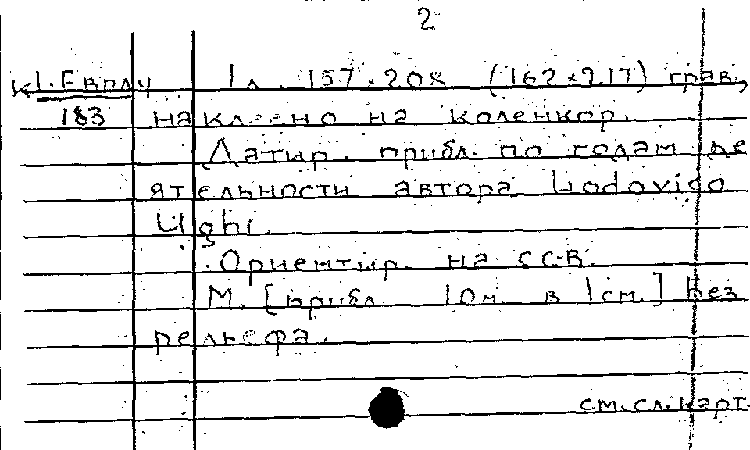 2
К1.Европ 1л. 157×208 (162×217) грав.,
183 наклеено на коленкор.
Датир. прибл. по годам де
ятельности автора Lodovico
Ughi.
Ориентир. на ССВ.
М. [прибл. 10м. в 1см.] Без
рельефа.
см.сл.карт.